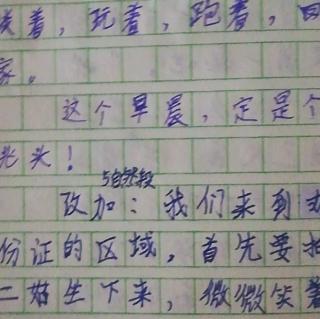 着，玩着，跑着，回
家。
这个早晨，定是个
兆头！
5自然段
改加：我们来到
份证的区域，首先要拍
二姑生下来，微微笑着